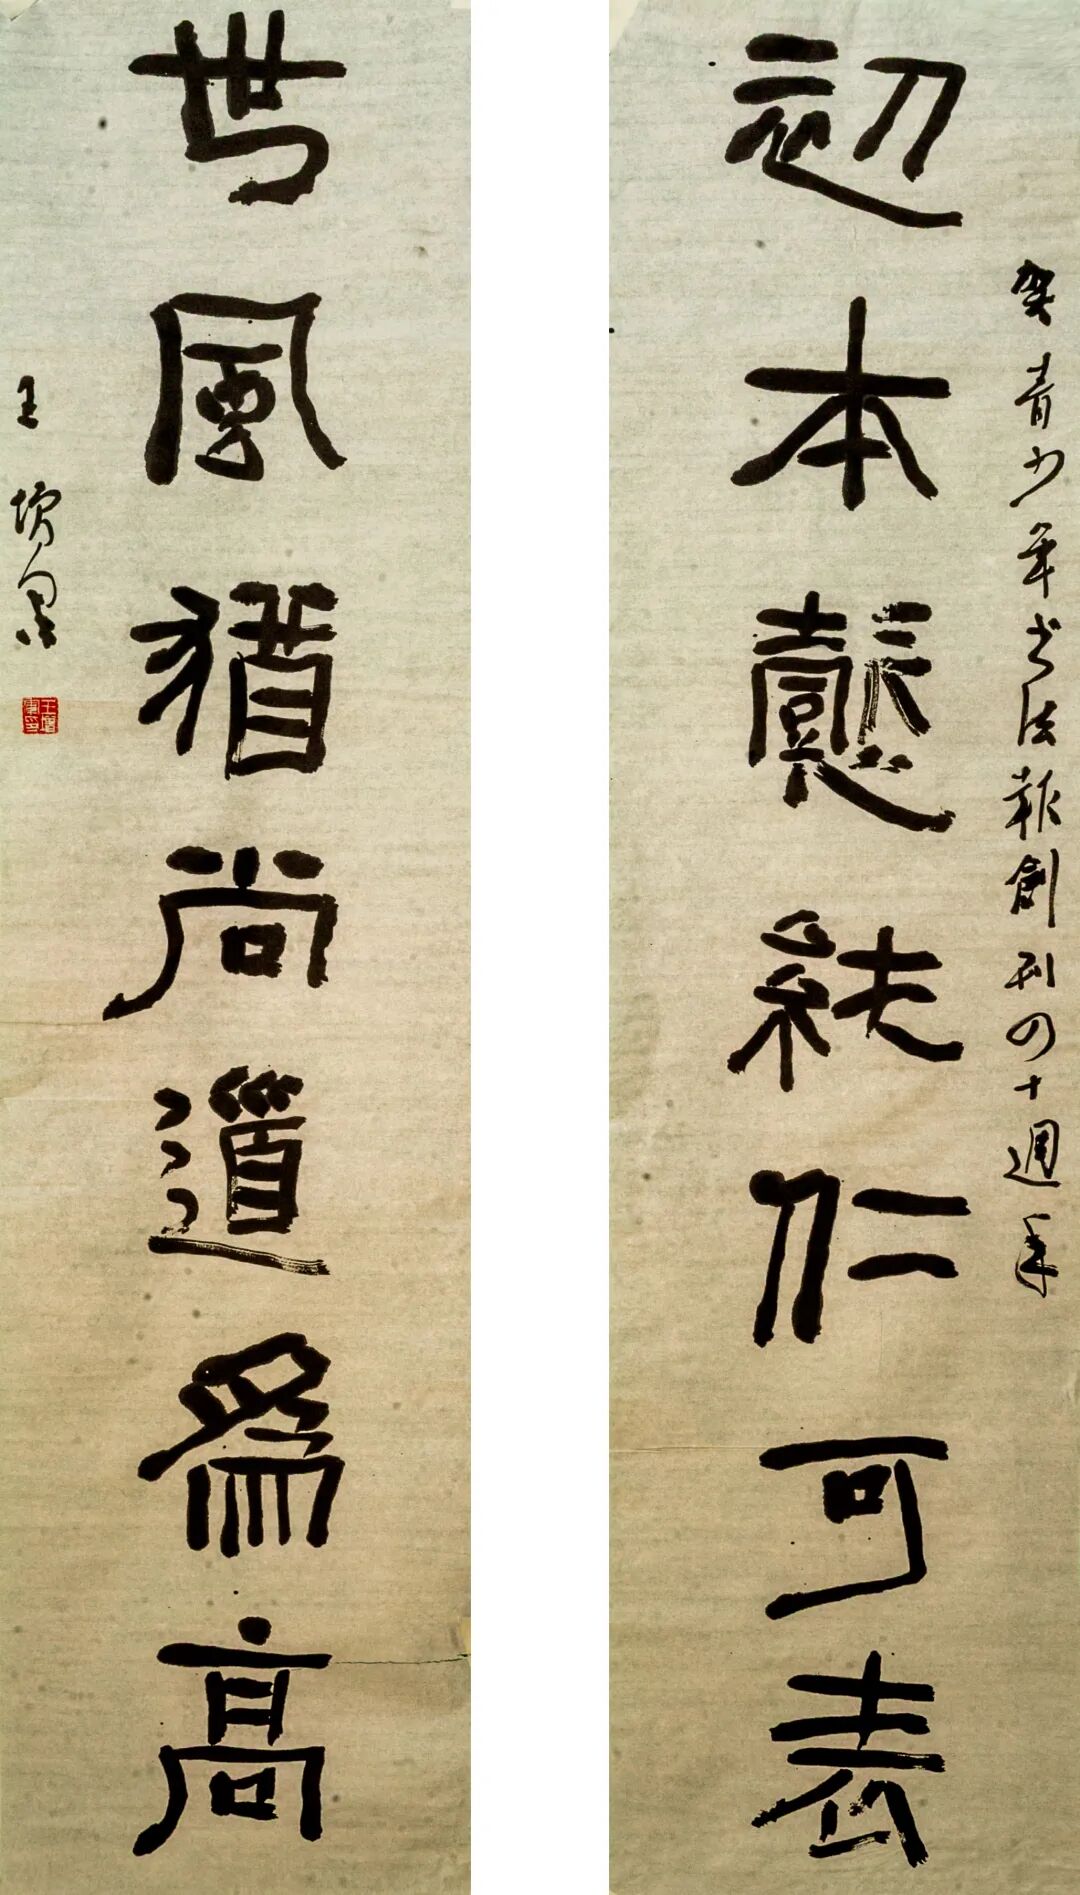 賀青少年书法報創刊四十週年
初本懿純仁可表
世風猶尚道爲高
王